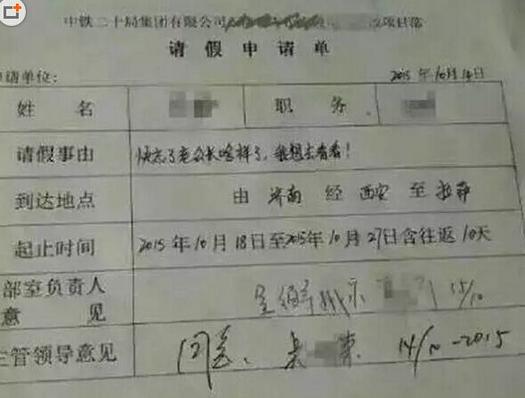 中铁二十局集团有限公司
请假申请单
申请单位:
2015年10月14日
姓 名 职 务
请假事由 快忘了老公长啥样了,我想去看看!
到达地点 由 济南 经 西安 至 拉萨
起止时间 2015年10月18日至2015年10月27日含往返10天
部室负责人
意 见 15/10
主管领导意见 同意. 14/10-2015